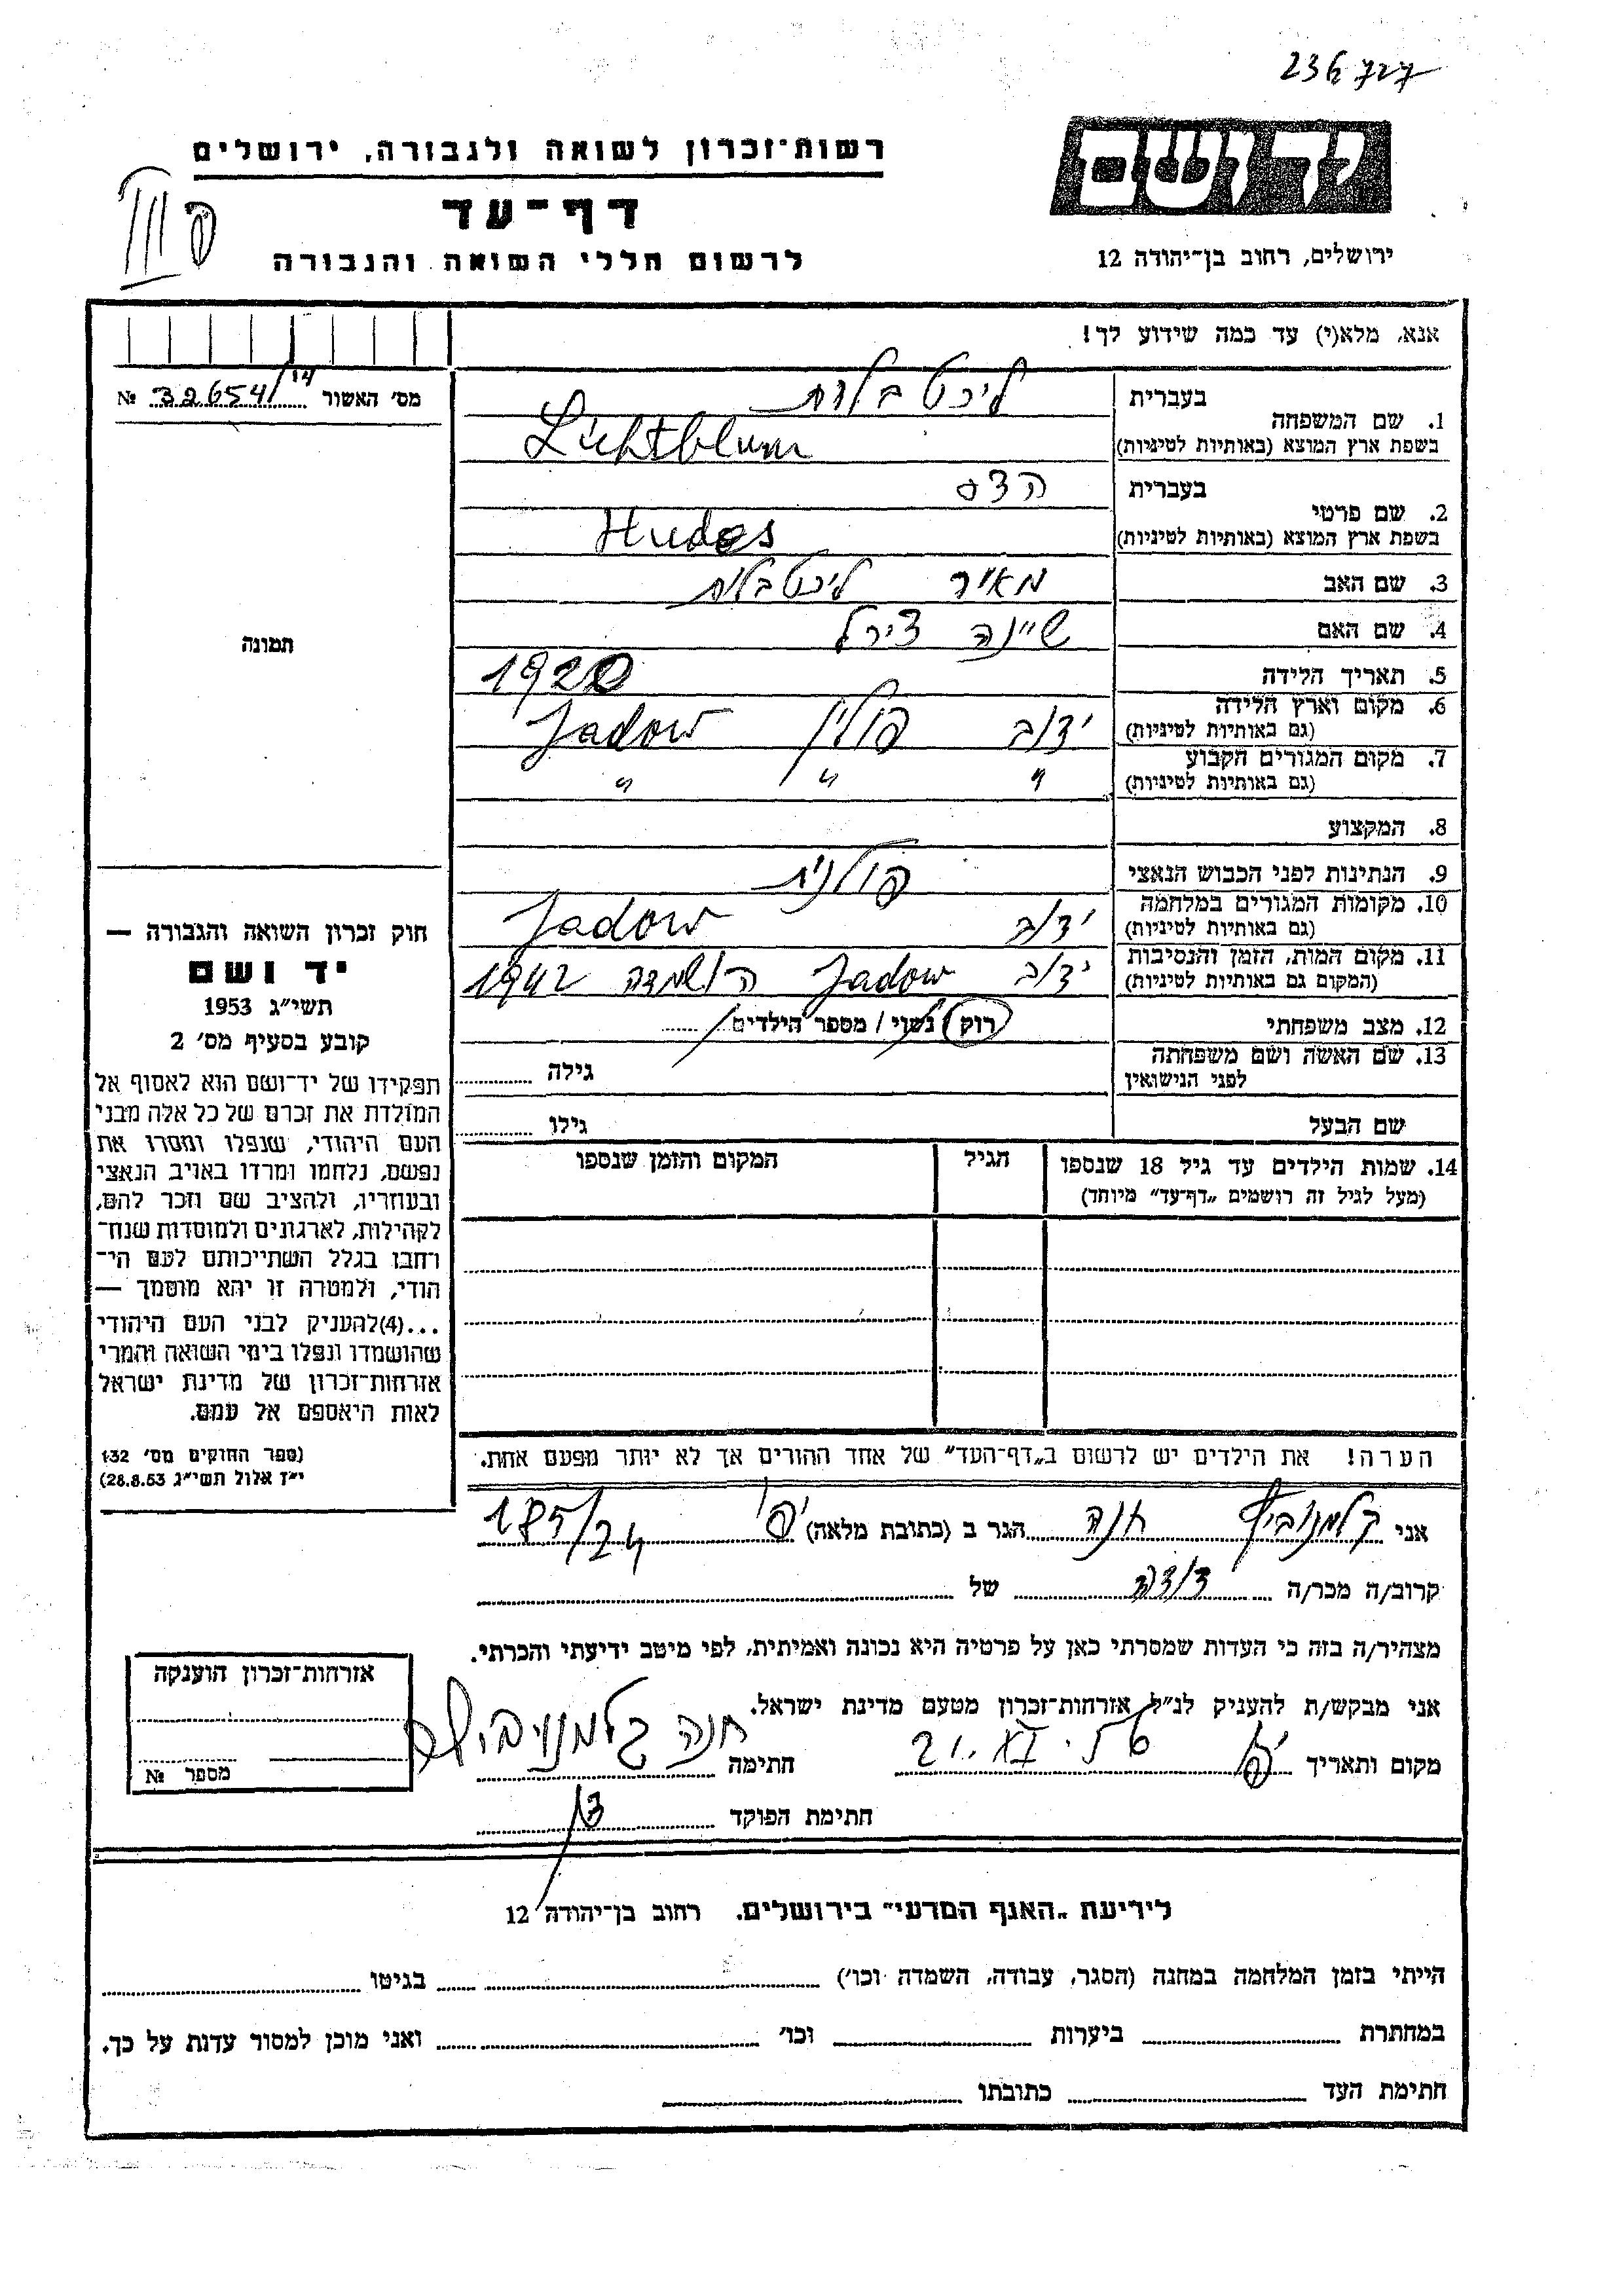 236727
יד ושם
ירושלים, רחוב בן־יהודה 12
רשות־זכרון לשואה ולגבורה, ירושלים
דף־עד
לרשום חללי השואה והגבורה
אנא, מלא(י) עד כמה שידוע לך!
מס' האשור № 32654/14
בעברית ליכטבלום
1. שם המשפחה
בשפת ארץ המוצא (באותיות לטיניות) Lichtblum
בעברית הדס
2. שם פרטי
בשפת ארץ המוצא (באותיות לטיניות) Hudes
3. שם האב מאיר ליכטבלום
4. שם האם שיינה צירל
5. תאריך הלידה 1920
6. מקום וארץ הלידה
(גם באותיות לטיניות) ידוב פולין Jadow
7. מקום המגורים הקבוע
(גם באותיות לטיניות) " " "
8. המקצוע
9. הנתינות לפני הכבוש הנאצי פולנית
10. מקומות המגורים במלחמה
(גם באותיות לטיניות) ידוב Jadow
11. מקום המות, הזמן והנסיבות
(המקום גם באותיות לטיניות) ידוב Jadow הושמדה 1942
12. מצב משפחתי רוק / נשוי / מספר הילדים
13. שם האשה ושם משפחתה
לפני הנישואין גילה
שם הבעל גילו
14. שמות הילדים עד גיל 18 שנספו הגיל המקום והזמן שנספו
(מעל לגיל זה רושמים „דף־עד" מיוחד)
הערה! את הילדים יש לרשום ב„דף־העד" של אחד ההורים אך לא יותר מפעם אחת.
תמונה
חוק זכרון השואה והגבורה —
יד ושם
תשי״ג 1953
קובע בסעיף מס' 2
תפקידו של יד־ושם הוא לאסוף אל
המולדת את זכרם של כל אלה מבני
העם היהודי, שנפלו ומסרו את
נפשם, נלחמו ומרדו באויב הנאצי
ובעוזריו, ולהציב שם וזכר להם,
לקהילות, לארגונים ולמוסדות שנח־
רחבו בגלל השתייכותם לעם הי־
הודי, ולמטרה זו יהא מוסמך —
...(4) להעניק לבני העם היהודי
שהושמדו ונפלו בימי השואה והמרי
אזרחות־זכרון של מדינת ישראל
לאות היאספם אל עמם.
(ספר החוקים מס' 132
י״ז אלול תשי״ג 28.8.53)
אני קלמנוביץ חנה הגר ב (כתובת מלאה) 185/24
קרוב/ה מכר/ה דודה של
מצהיר/ה בזה כי העדות שמסרתי כאן על פרטיה היא נכונה ואמיתית, לפי מיטב ידיעתי והכרתי.
אני מבקש/ת להעניק לנ״ל אזרחות־זכרון מטעם מדינת ישראל.
מקום ותאריך חתימה חנה קלמנוביץ
חתימת הפוקד
אזרחות־זכרון הוענקה
מספר №
לידיעת „האגף המדעי" בירושלים, רחוב בן־יהודה 12
הייתי בזמן המלחמה במחנה (הסגר, עבודה, השמדה וכו') בגיטו
במחתרת ביערות וכו' ואני מוכן למסור עדות על כך.
חתימת העד כתובתו